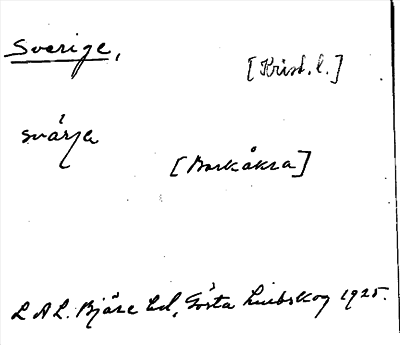 Sverige,
[Krist. l.]
svärja
[Barkåkra]
L A L. Bjäre hd, Gösta Liebskog 1925.